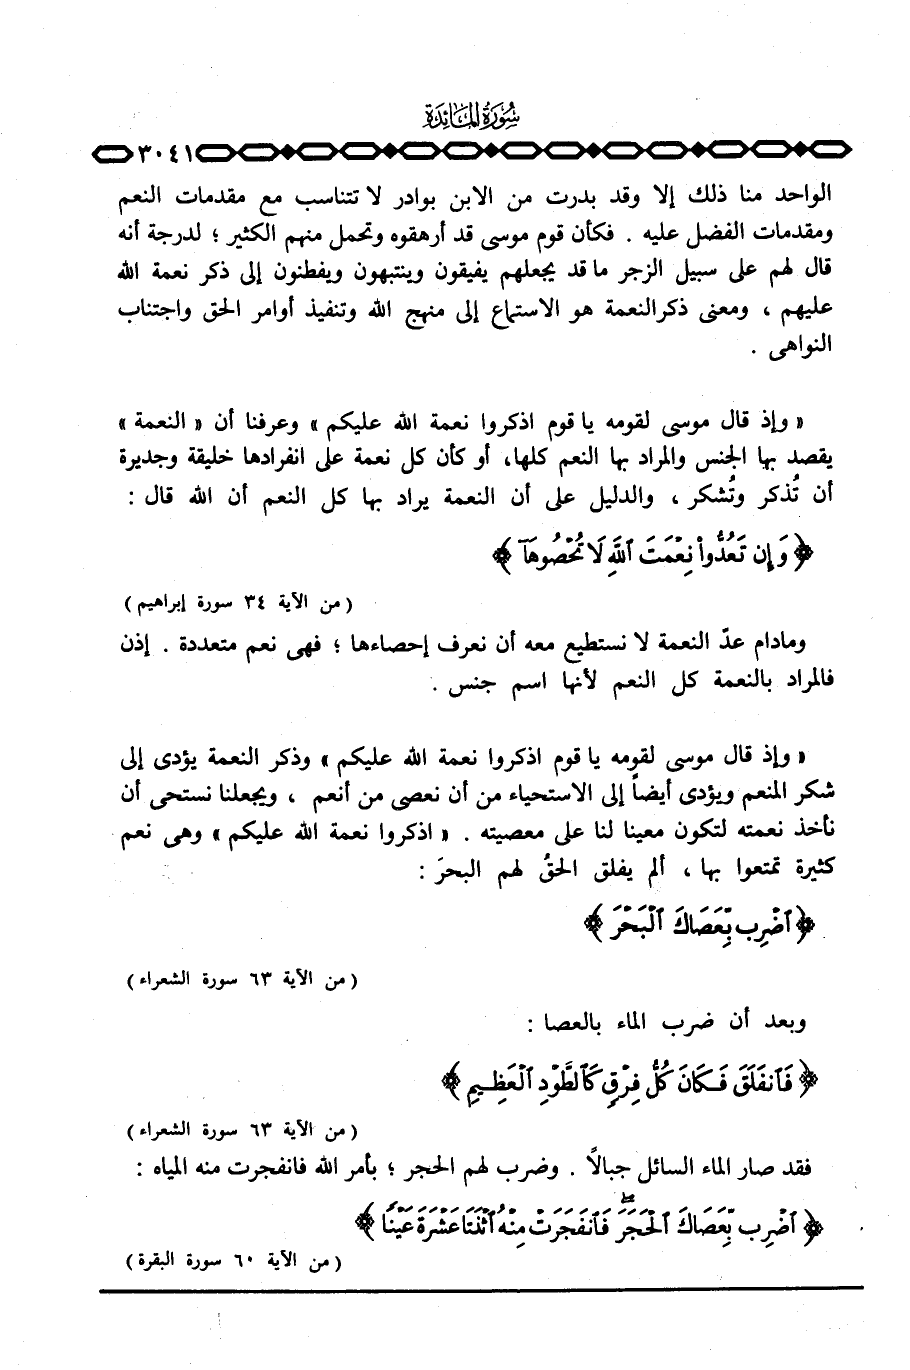 سُورَةُ المَائِدَة
٣٠٤١
الواحد منا ذلك إلا وقد بدرت من الابن بوادر لا تتناسب مع مقدمات النعم
ومقدمات الفضل عليه . فكأن قوم موسى قد أرهقوه وتحمل منهم الكثير ؛ لدرجة أنه
قال لهم على سبيل الزجر ما قد يجعلهم يفيقون وينتبهون ويفطنون إلى ذكر نعمة الله
عليهم ، ومعنى ذكر النعمة هو الاستماع إلى منهج الله وتنفيذ أوامر الحق واجتناب
النواهى .
« وإذ قال موسى لقومه يا قوم اذكروا نعمة الله عليكم » وعرفنا أن « النعمة »
يقصد بها الجنس والمراد بها النعم كلها، أو كأن كل نعمة على انفرادها خليقة وجديرة
أن تُذكر وتُشكر ، والدليل على أن النعمة يراد بها كل النعم أن الله قال :
﴿ وَإِن تَعُدُّواْ نِعْمَتَ ٱللَّهِ لَا تُحْصُوهَآ ﴾
( من الآية ٣٤ سورة إبراهيم )
ومادام عدّ النعمة لا نستطيع معه أن نعرف إحصاءها ؛ فهى نعم متعددة . إذن
فالمراد بالنعمة كل النعم لأنها اسم جنس .
« وإذ قال موسى لقومه يا قوم اذكروا نعمة الله عليكم » وذكر النعمة يؤدى إلى
شكر المنعم ويؤدى أيضاً إلى الاستحياء من أن نعصى من أنعم ، ويجعلنا نستحى أن
نأخذ نعمته لتكون معينا لنا على معصيته . « اذكروا نعمة الله عليكم » وهى نعم
كثيرة تمتعوا بها ، ألم يفلق الحقُ لهم البحرَ :
﴿ ٱضْرِب بِّعَصَاكَ ٱلْبَحْرَ ﴾
( من الآية ٦٣ سورة الشعراء )
وبعد أن ضرب الماء بالعصا :
﴿ فَٱنفَلَقَ فَكَانَ كُلُّ فِرْقٍ كَٱلطَّوْدِ ٱلْعَظِيمِ ﴾
( من الآية ٦٣ سورة الشعراء )
فقد صار الماء السائل جبالاً . وضرب لهم الحجر ؛ بأمر الله فانفجرت منه المياه :
﴿ ٱضْرِب بِّعَصَاكَ ٱلْحَجَرَ ۖ فَٱنفَجَرَتْ مِنْهُ ٱثْنَتَا عَشْرَةَ عَيْنًا ﴾
( من الآية ٦٠ سورة البقرة )